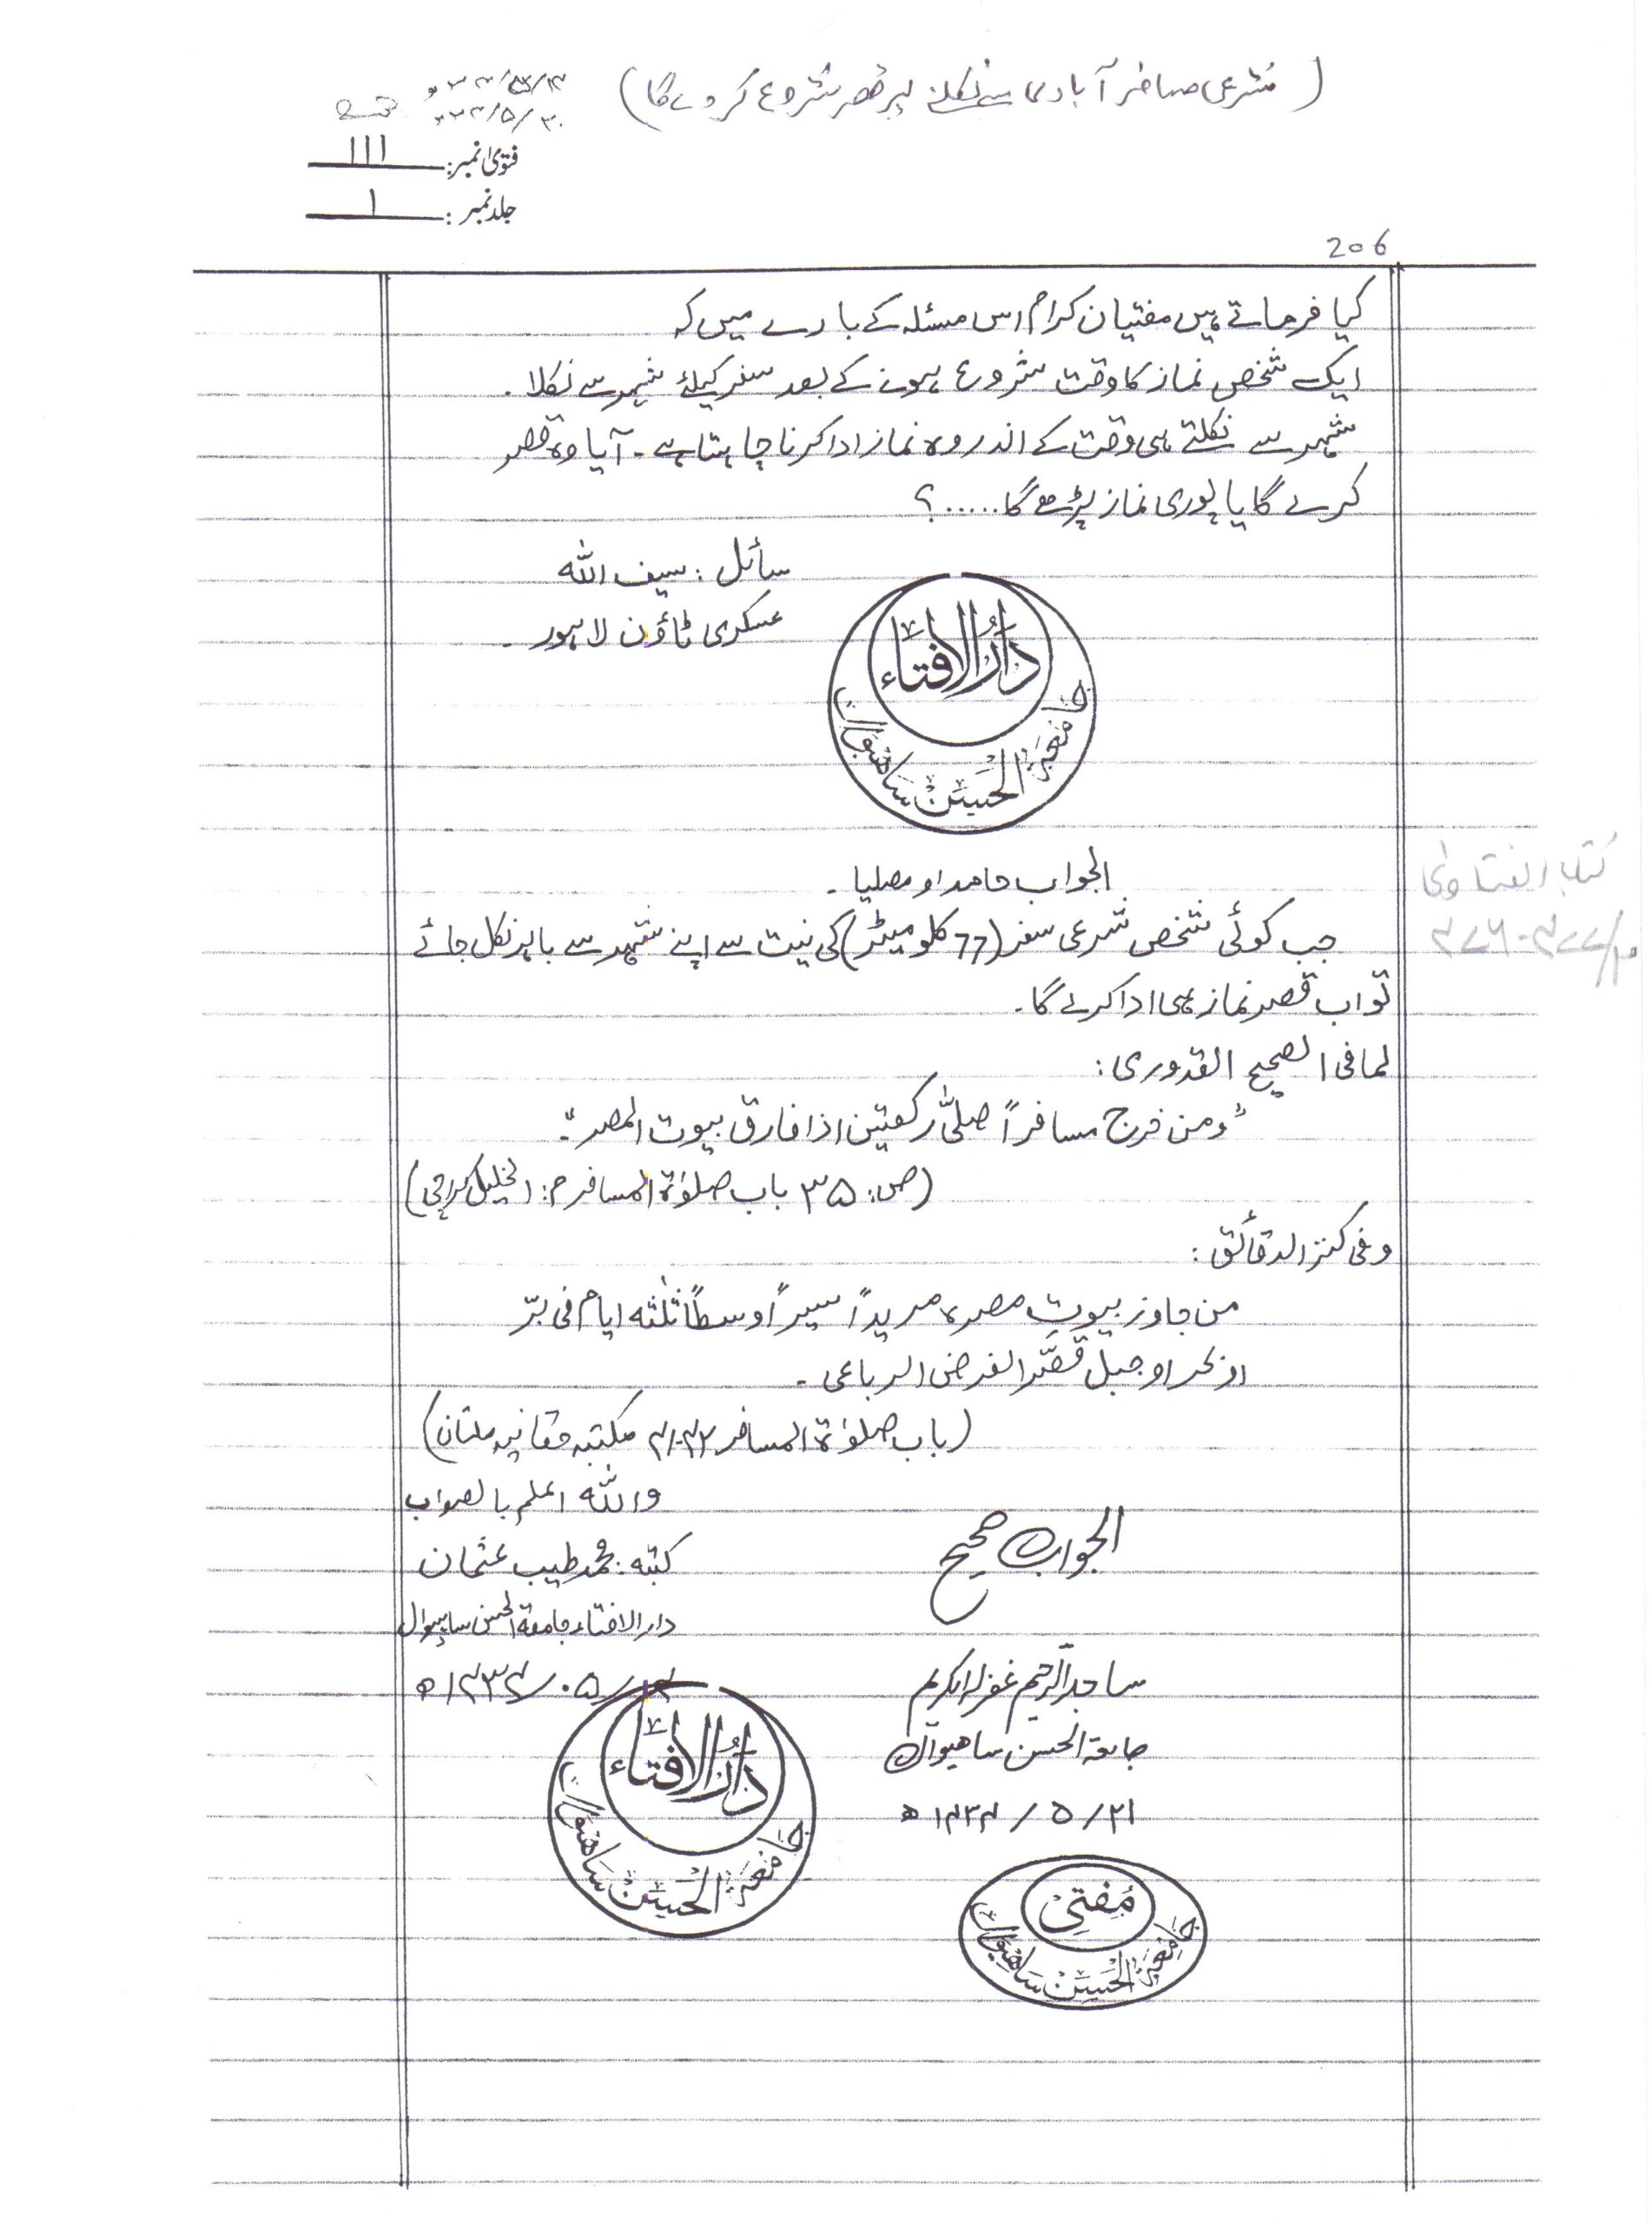 (شرعی مسافر آبادی سے نکلنے پر قصر شروع کرے گا)
فتویٰ نمبر: ١١١
جلد نمبر: ١
206
کیا فرماتے ہیں مفتیان کرام اس مسئلہ کے بارے میں کہ
ایک شخص نماز کا وقت شروع ہونے کے بعد سفر کیلئے شہر سے نکلا۔
شہر سے نکلتے ہی وقت کے اندر وہ نماز ادا کرنا چاہتا ہے۔ آیا وہ قصر
کرے گا یا پوری نماز پڑھے گا.....؟
سائل: سیف اللہ
عسکری ٹاؤن لاہور۔
دارُ الافتاء
جامعۃ الحسن ساھیوال
الجواب حامدا و مصلیا۔
کتاب الفتاویٰ
جب کوئی شخص شرعی سفر (77 کلو میٹر) کی نیت سے اپنے شہر سے باہر نکل جائے
تو اب قصر نماز ہی ادا کرے گا۔
لما فی الصحیح القدوری:
"ومن خرج مسافراً صلیّٰ رکعتین اذا فارق بیوت المصر"۔
(ص: ٣۵ باب صلوٰۃ المسافر م: الخلیل کراچی)
وفی کنز الدقائق:
من جاوز بیوتِ مصرہ مریداً سیراً وسطاً ثلٰثه ایام فی برّ
او بحر او جبل قصَّر الفرض الرباعی۔
(باب صلوٰۃ المسافر مکتبہ حقانیہ ملتان)
واللہ اعلم بالصواب
الجواب صحیح
کتبہ: محمد طیب عثمان
دار الافتاء جامعۃ الحسن ساہیوال
ساجد الرحیم غفر لہ الکریم
جامعۃ الحسن ساھیوال
٢١/۵/١۴٣٢ھ
دارُ الافتاء
جامعۃ الحسن ساھیوال
مُفتی
جامعۃ الحسن ساھیوال